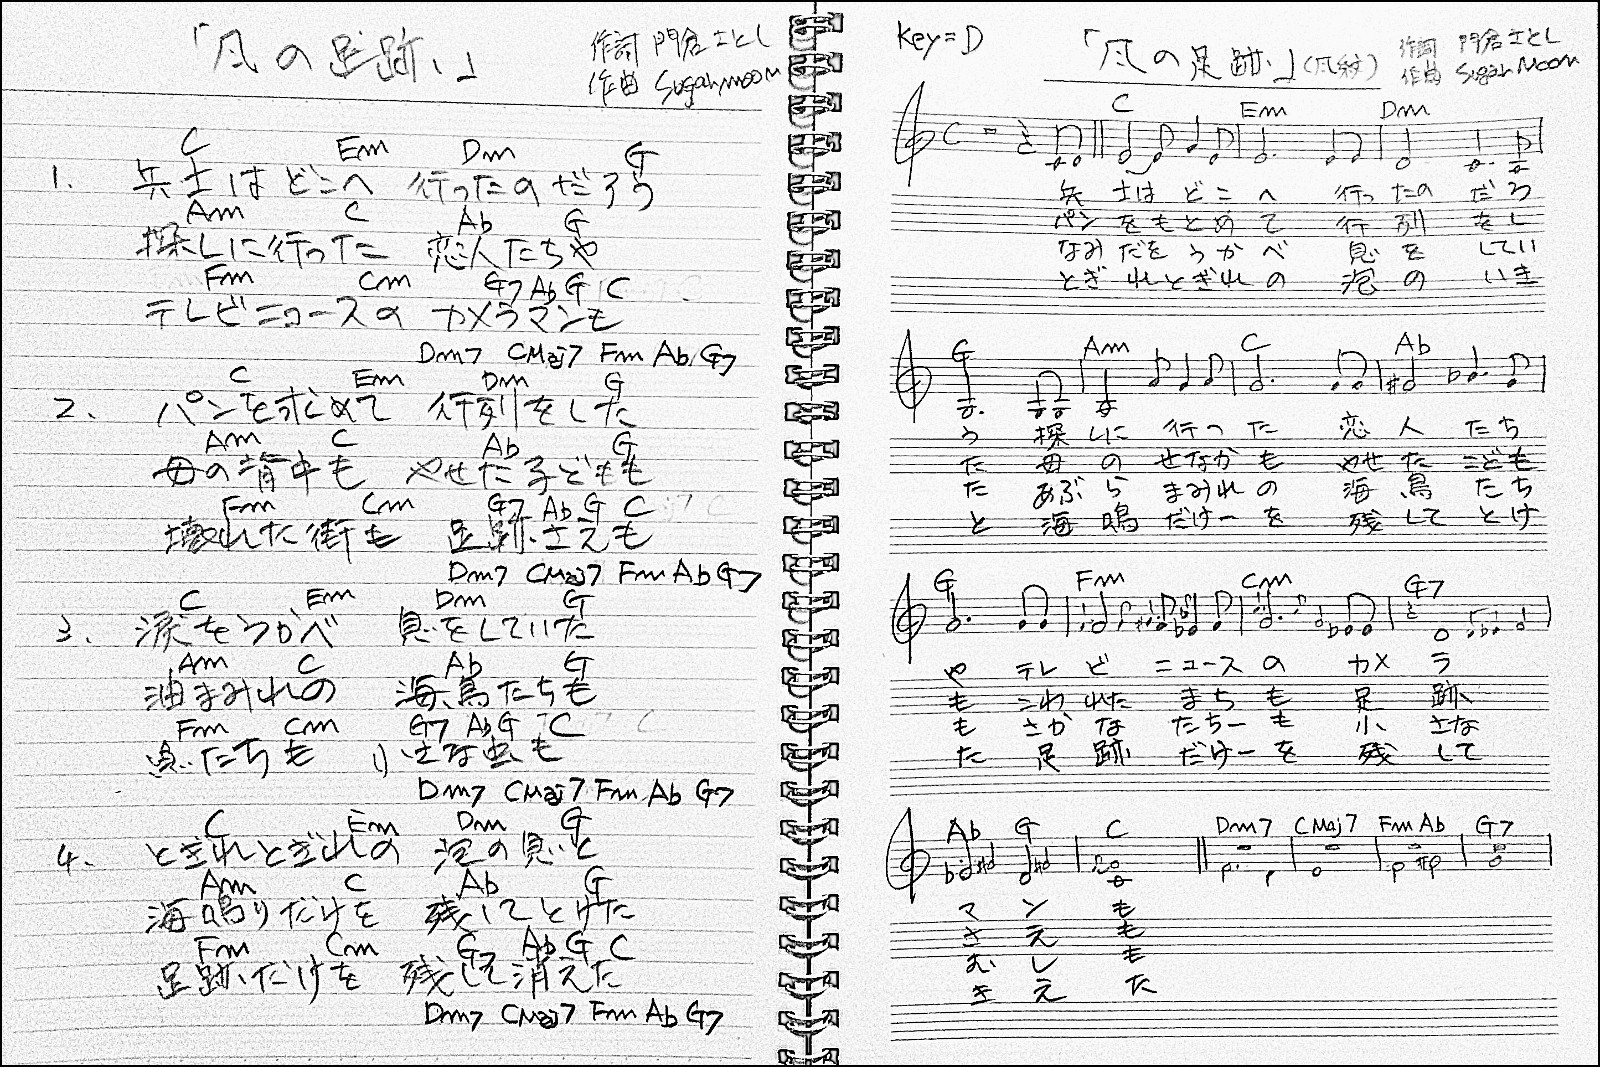 「風の足跡」
作詞 門倉さとし
作曲 SugarMoon
C Em Dm G
1. 兵士はどこへ 行ったのだろう
Am C Ab G
探しに行った 恋人たちや
Fm Cm G7 Ab G C
テレビニュースの カメラマンも
Dm7 CMaj7 Fm Ab G7
C Em Dm G
2. パンを求めて 行列をした
Am C Ab G
母の背中も やせた子どもも
Fm Cm G7 Ab G C
壊れた街も 足跡さえも
Dm7 CMaj7 Fm Ab G7
C Em Dm G
3. 涙をうかべ 息をしていた
Am C Ab G
油まみれの 海鳥たちも
Fm Cm G7 Ab G C
魚たちも 小さな虫も
Dm7 CMaj7 Fm Ab G7
C Em Dm G
4. とぎれとぎれの 泡の息と
Am C Ab G
海鳴りだけを 残してとけた
Fm Cm G7 Ab G C
足跡だけを 残して消えた
Dm7 CMaj7 Fm Ab G7
Key=D
「風の足跡」(風紋)
作詞 門倉さとし
作曲 SugarMoon
C Em Dm
兵 士は どこ へ 行ったの だろ
パン をもとめて 行列 をし
なみだを うかべ 息を してい
とぎれとぎれの 泡の いき
G Am C Ab
う 探しに 行った 恋人 たち
た 母の せなかも やせた こども
た あぶら まみれの 海鳥 たち
と 海鳴 だけーを 残して とけ
G Fm Cm G7
や テレビ ニュースの カメ ラ
も こわれた まちも 足 跡
も さかな たちーも 小 さな
た 足跡 だけーを 残 して
Ab G C Dm7 CMaj7 Fm Ab G7
マ ン も
さ え も
む し も
き え た